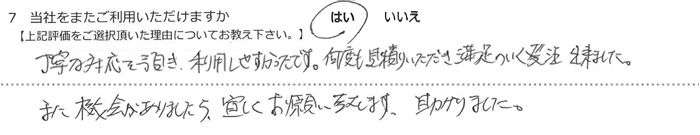 7 当社をまたご利用いただけますか はい いいえ
【上記評価をご選択頂いた理由についてお教え下さい。】
丁寧な対応を頂き、利用しやすかったです。何度も見積りいただき満足のいく発注出来ました。
また機会がありましたら、宜しくお願い致します。助かりました。